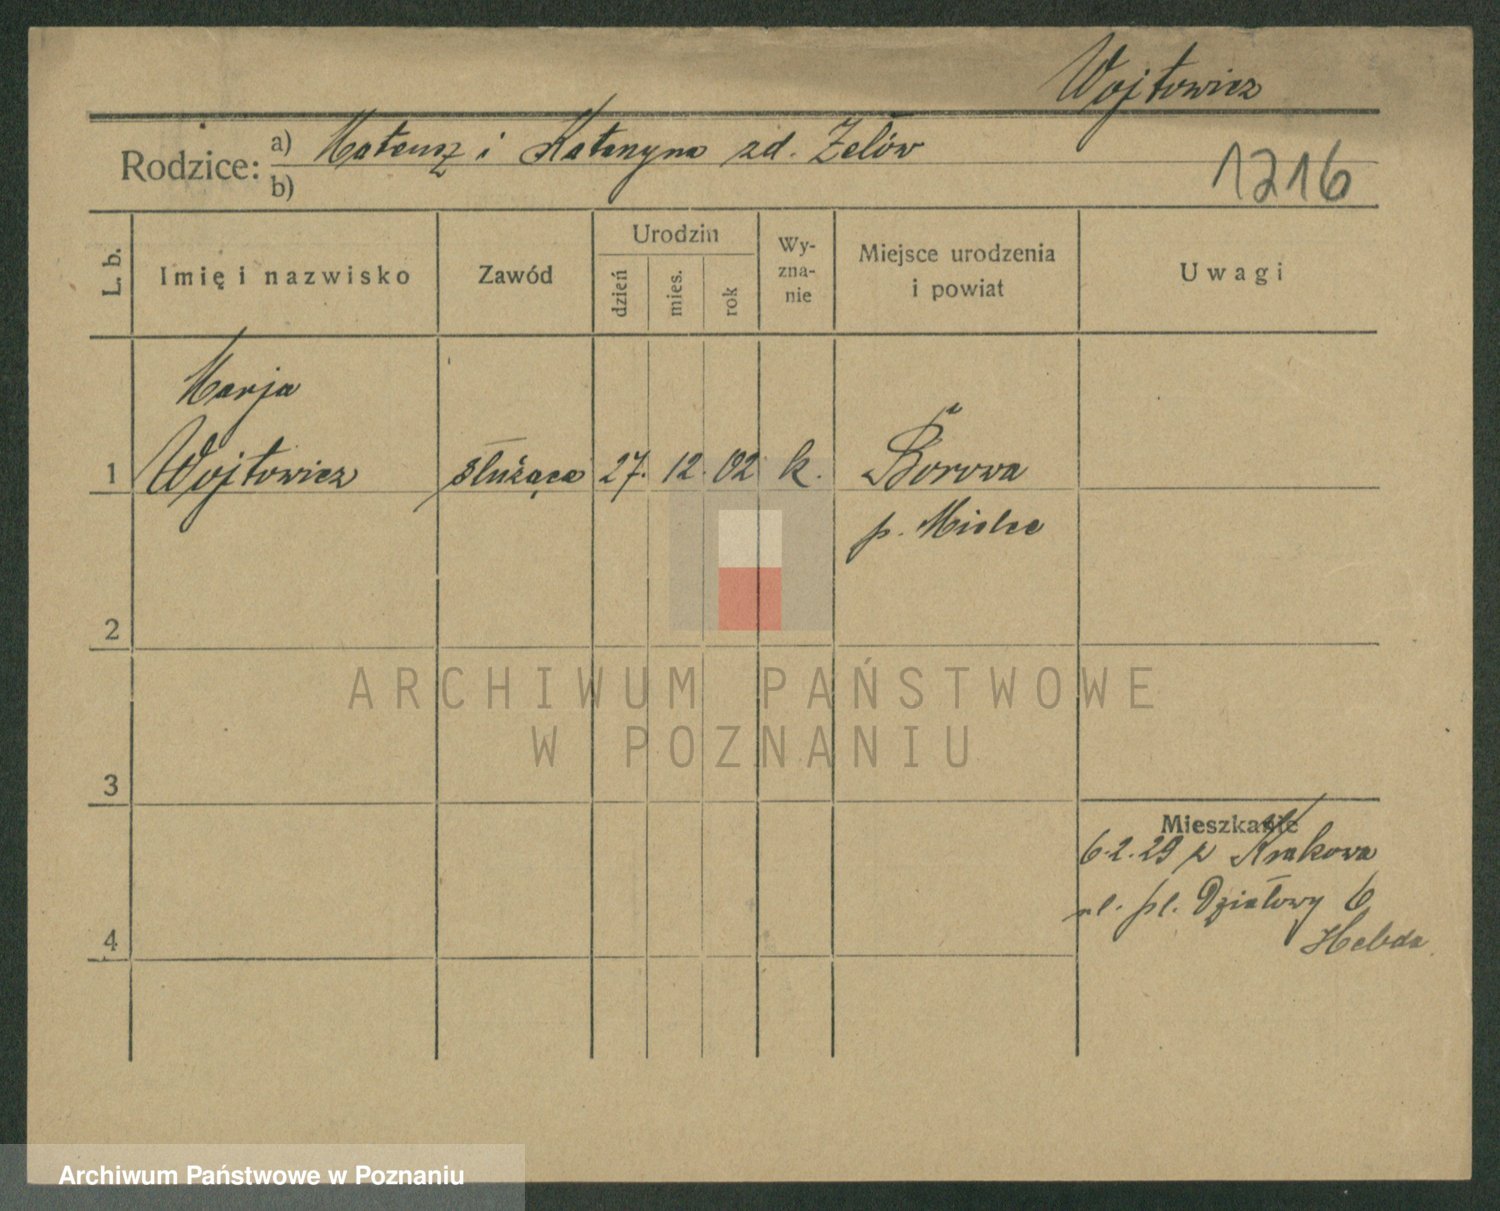 Wojtowicz
Rodzice: a) Mateusz i Katarzyna zd. Zelów
b)
1216
L. b.
Imię i nazwisko
Zawód
Urodzin
dzień
mies.
rok
Wy-
zna-
nie
Miejsce urodzenia
i powiat
Uwagi
Marja
1 Wojtowicz służąca 27. 12. 02 k. Borowa
p. Mielec
2
ARCHIWUM PAŃSTWOWE
W POZNANIU
3
Mieszkanie
6.2.29 z Krakowa
ul. pl. Działowy 6
4
Hebda
Archiwum Państwowe w Poznaniu